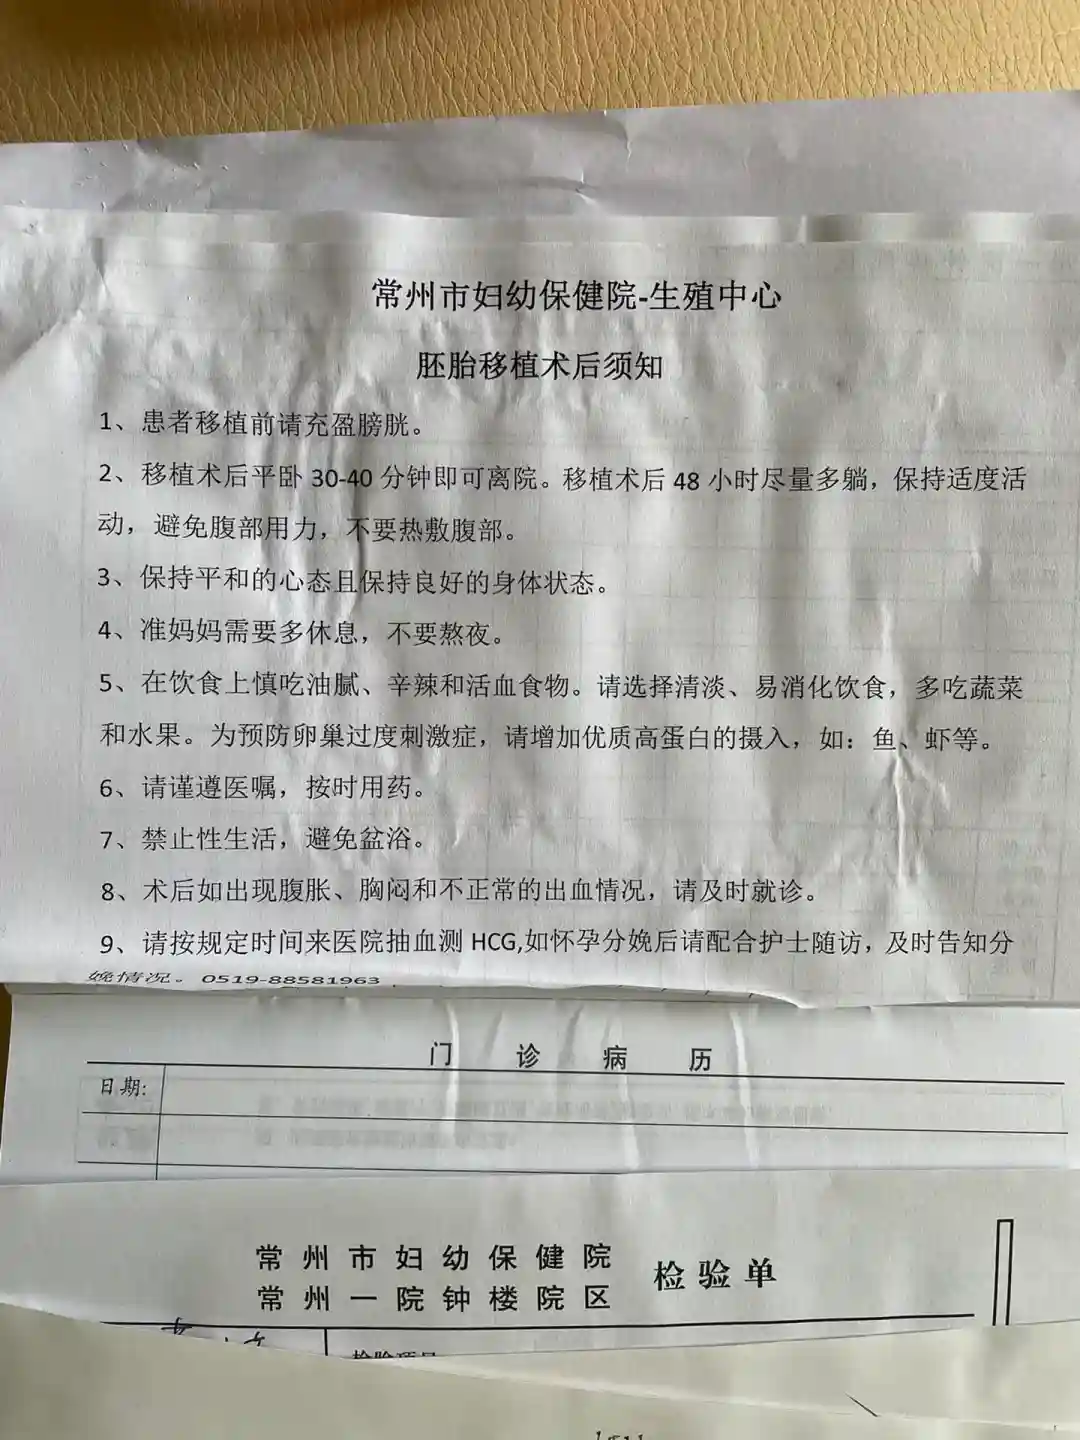 常州市妇幼保健院-生殖中心
胚胎移植术后须知
1、患者移植前请充盈膀胱。
2、移植术后平卧 30-40 分钟即可离院。移植术后 48 小时尽量多躺，保持适度活
动，避免腹部用力，不要热敷腹部。
3、保持平和的心态且保持良好的身体状态。
4、准妈妈需要多休息，不要熬夜。
5、在饮食上慎吃油腻、辛辣和活血食物。请选择清淡、易消化饮食，多吃蔬菜
和水果。为预防卵巢过度刺激症，请增加优质高蛋白的摄入，如：鱼、虾等。
6、请谨遵医嘱，按时用药。
7、禁止性生活，避免盆浴。
8、术后如出现腹胀、胸闷和不正常的出血情况，请及时就诊。
9、请按规定时间来医院抽血测 HCG,如怀孕分娩后请配合护士随访，及时告知分
娩情况。0519-88581963
门 诊 病 历
日期:
常州市妇幼保健院
常州一院钟楼院区
检验单
检验项目